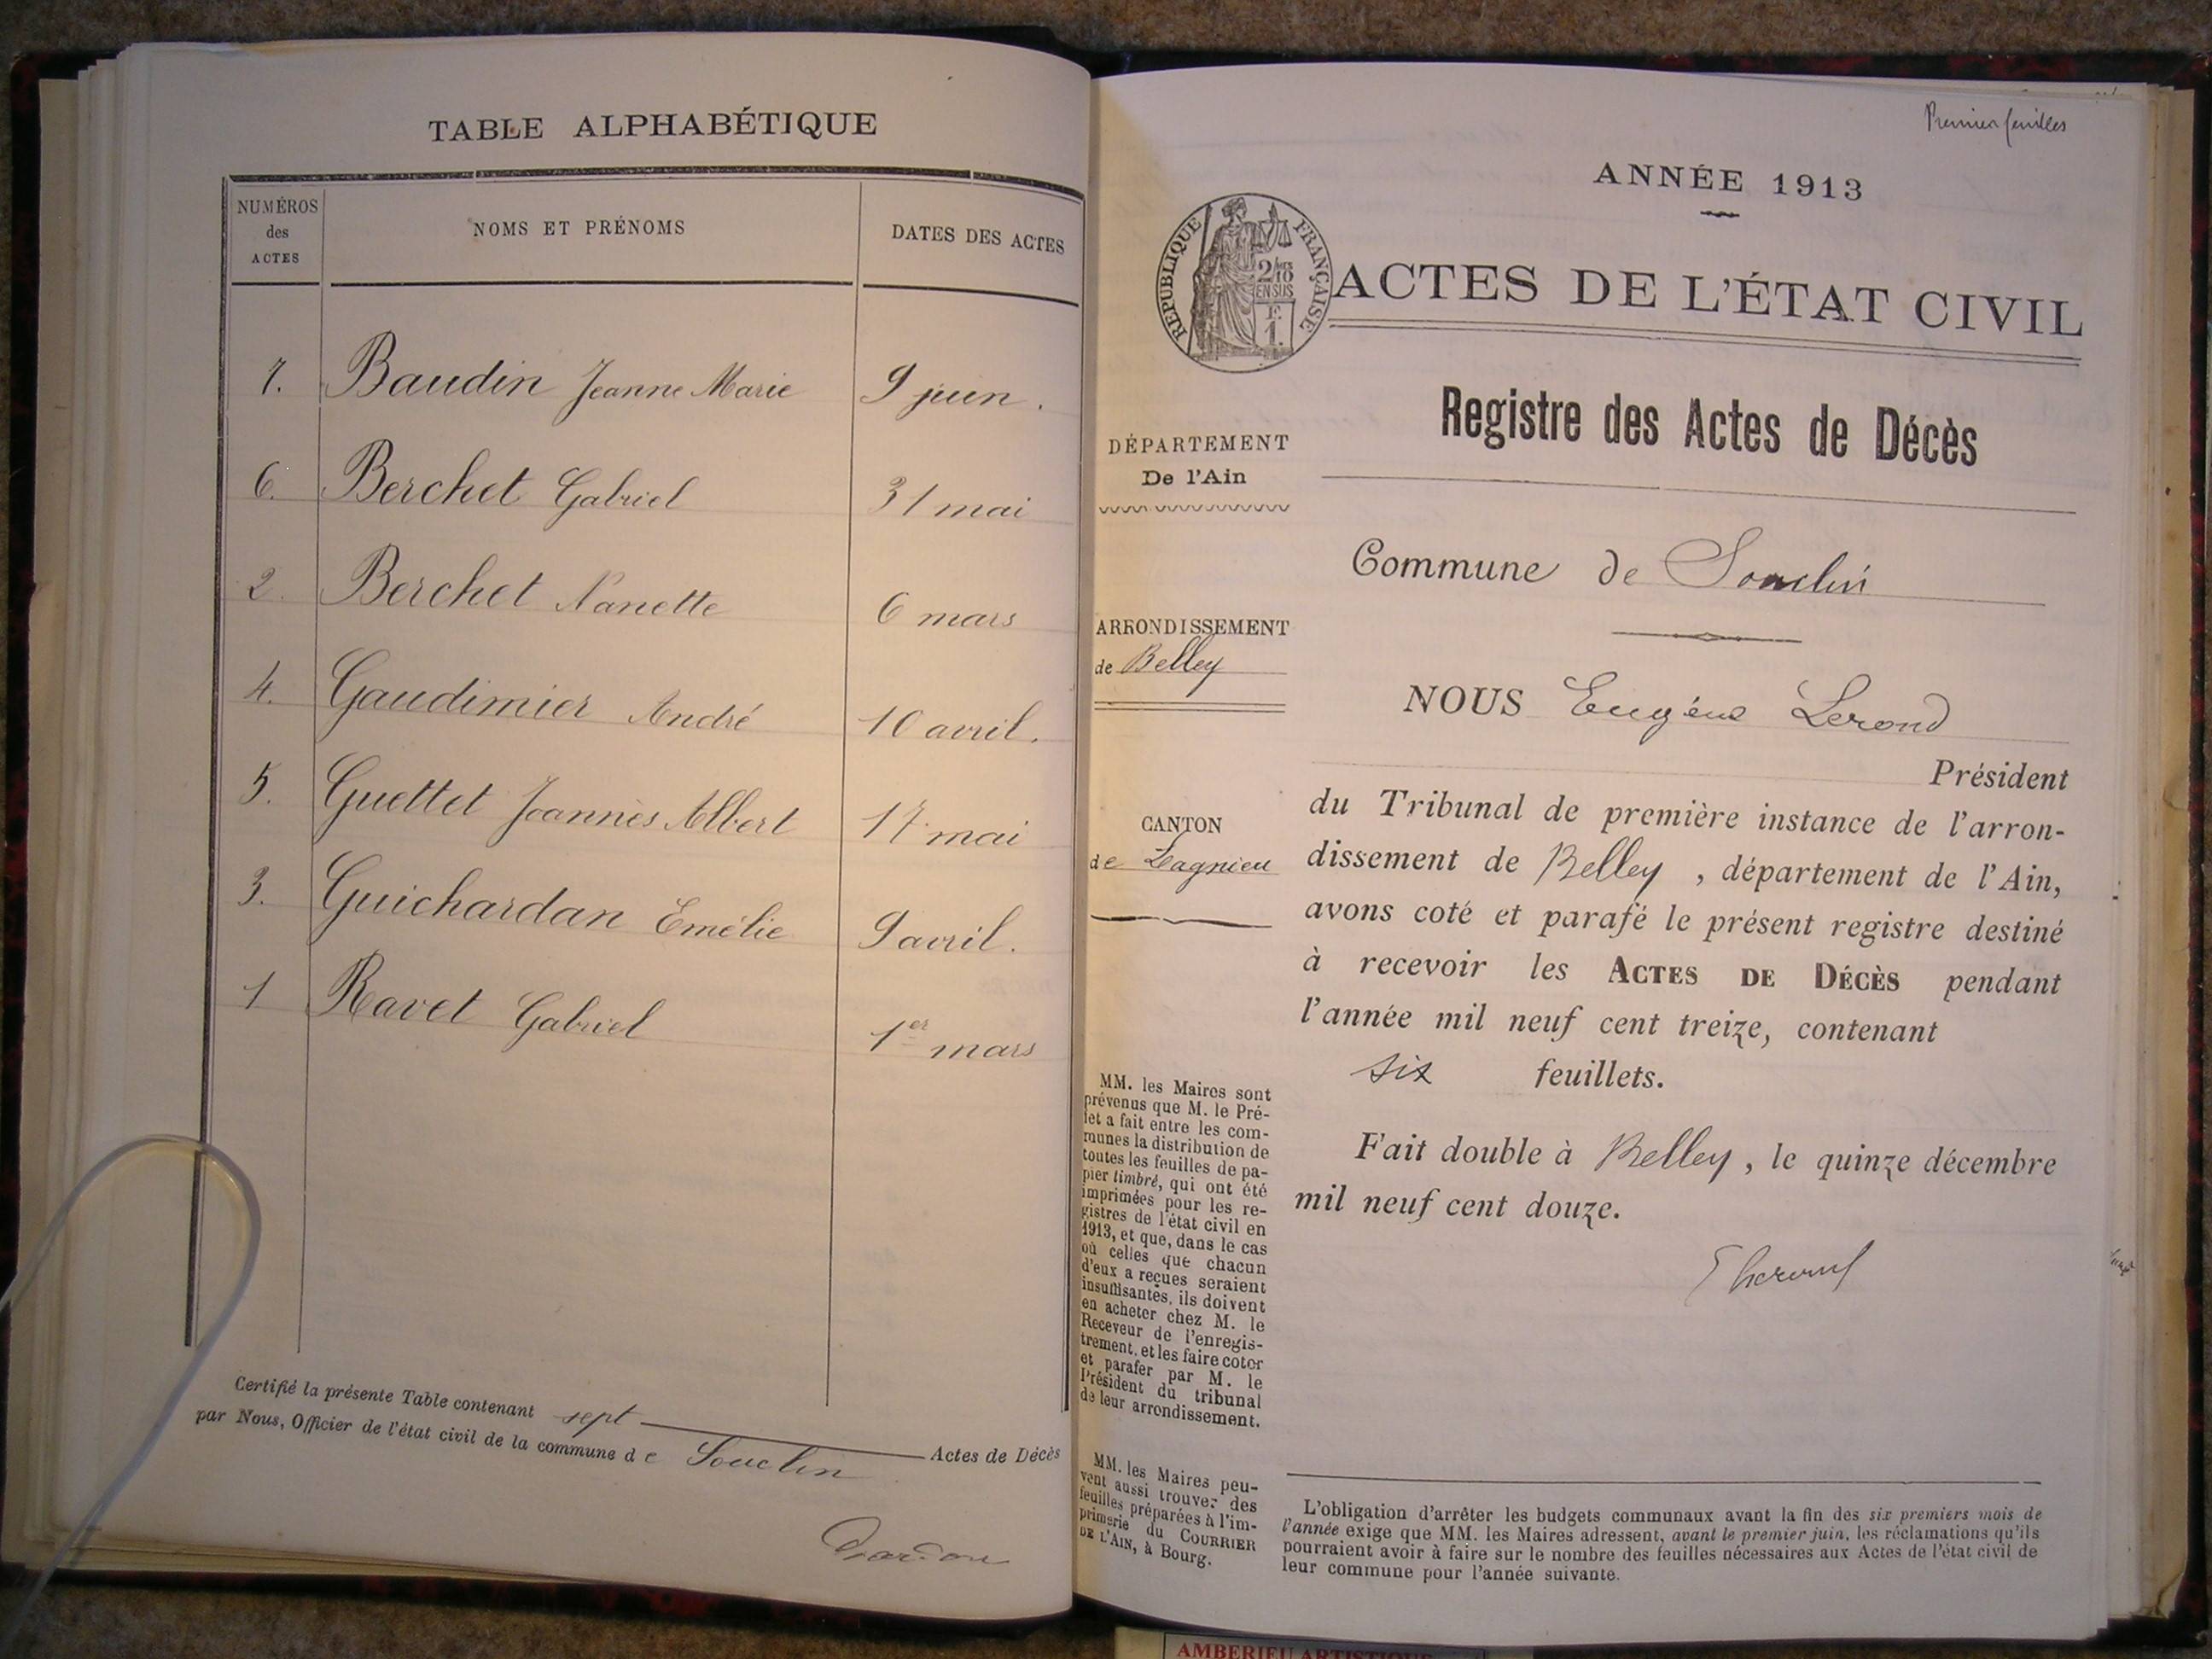 TABLE ALPHABÉTIQUE
NUMÉROS
des
ACTES
NOMS ET PRÉNOMS
DATES DES ACTES
7. Baudin Jeanne Marie 9 juin.
6. Berchet Gabriel 31 mai
2. Berchet Nanette 6 mars
4. Gaudimier André 10 avril.
5. Guettet Joannès Albert 17 mai
3. Guichardan Emélie 9 avril.
1 Ravet Gabriel 1er mars
Certifié la présente Table contenant sept Actes de Décès
par Nous, Officier de l'état civil de la commune de Souclin
Premier feuilles
ANNÉE 1913
RÉPUBLIQUE FRANÇAISE
2/10
EN SUS
1 F.
ACTES DE L'ÉTAT CIVIL
Registre des Actes de Décès
DÉPARTEMENT
De l'Ain
Commune de Souclin
ARRONDISSEMENT
de Belley
NOUS Eugène Lerond
Président
du Tribunal de première instance de l'arron-
CANTON
de Lagnieu
dissement de Belley, département de l'Ain,
avons coté et parafé le présent registre destiné
à recevoir les ACTES DE DÉCÈS pendant
l'année mil neuf cent treize, contenant
six feuillets.
Fait double à Belley, le quinze décembre
mil neuf cent douze.
MM. les Maires sont
prévenus que M. le Pré-
fet a fait entre les com-
munes la distribution de
toutes les feuilles de pa-
pier timbré, qui ont été
imprimées pour les re-
gistres de l'état civil en
1913, et que, dans le cas
où celles que chacun
d'eux a reçues seraient
insuffisantes, ils doivent
en acheter chez M. le
Receveur de l'enregis-
trement, et les faire coter
et parafer par M. le
Président du tribunal
de leur arrondissement.
MM. les Maires peu-
vent aussi trouver des
feuilles préparées à l'im-
primerie du COURRIER
DE L'AIN, à Bourg.
L'obligation d'arrêter les budgets communaux avant la fin des six premiers mois de
l'année exige que MM. les Maires adressent, avant le premier juin, les réclamations qu'ils
pourraient avoir à faire sur le nombre des feuilles nécessaires aux Actes de l'état civil de
leur commune pour l'année suivante.
AMBERIEU ARTISTIQUE